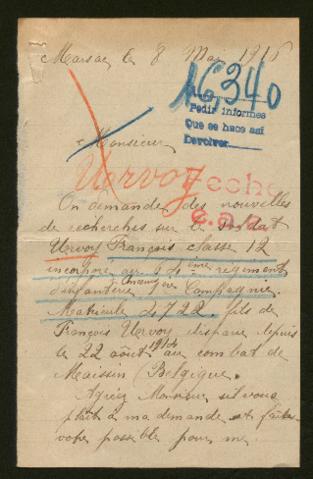 Marsac le 8 Mai 1916
16,340
Pedir informes
Que se hace asi
Devolver
Monsieur
Uervoy
Fecho
On demande des nouvelles
de recherches sur le soldat
Uervoy François classe 12
incorpore au ième regiment
d'infanterie Compagnie.
Matricule 4722. fils de
François Uervoy disparu depuis
le 22 août 1914 au combat de
Maissin (Belgique.
Agréez Monsieur sil vous
plait à ma demande et faite
votre possible pour me